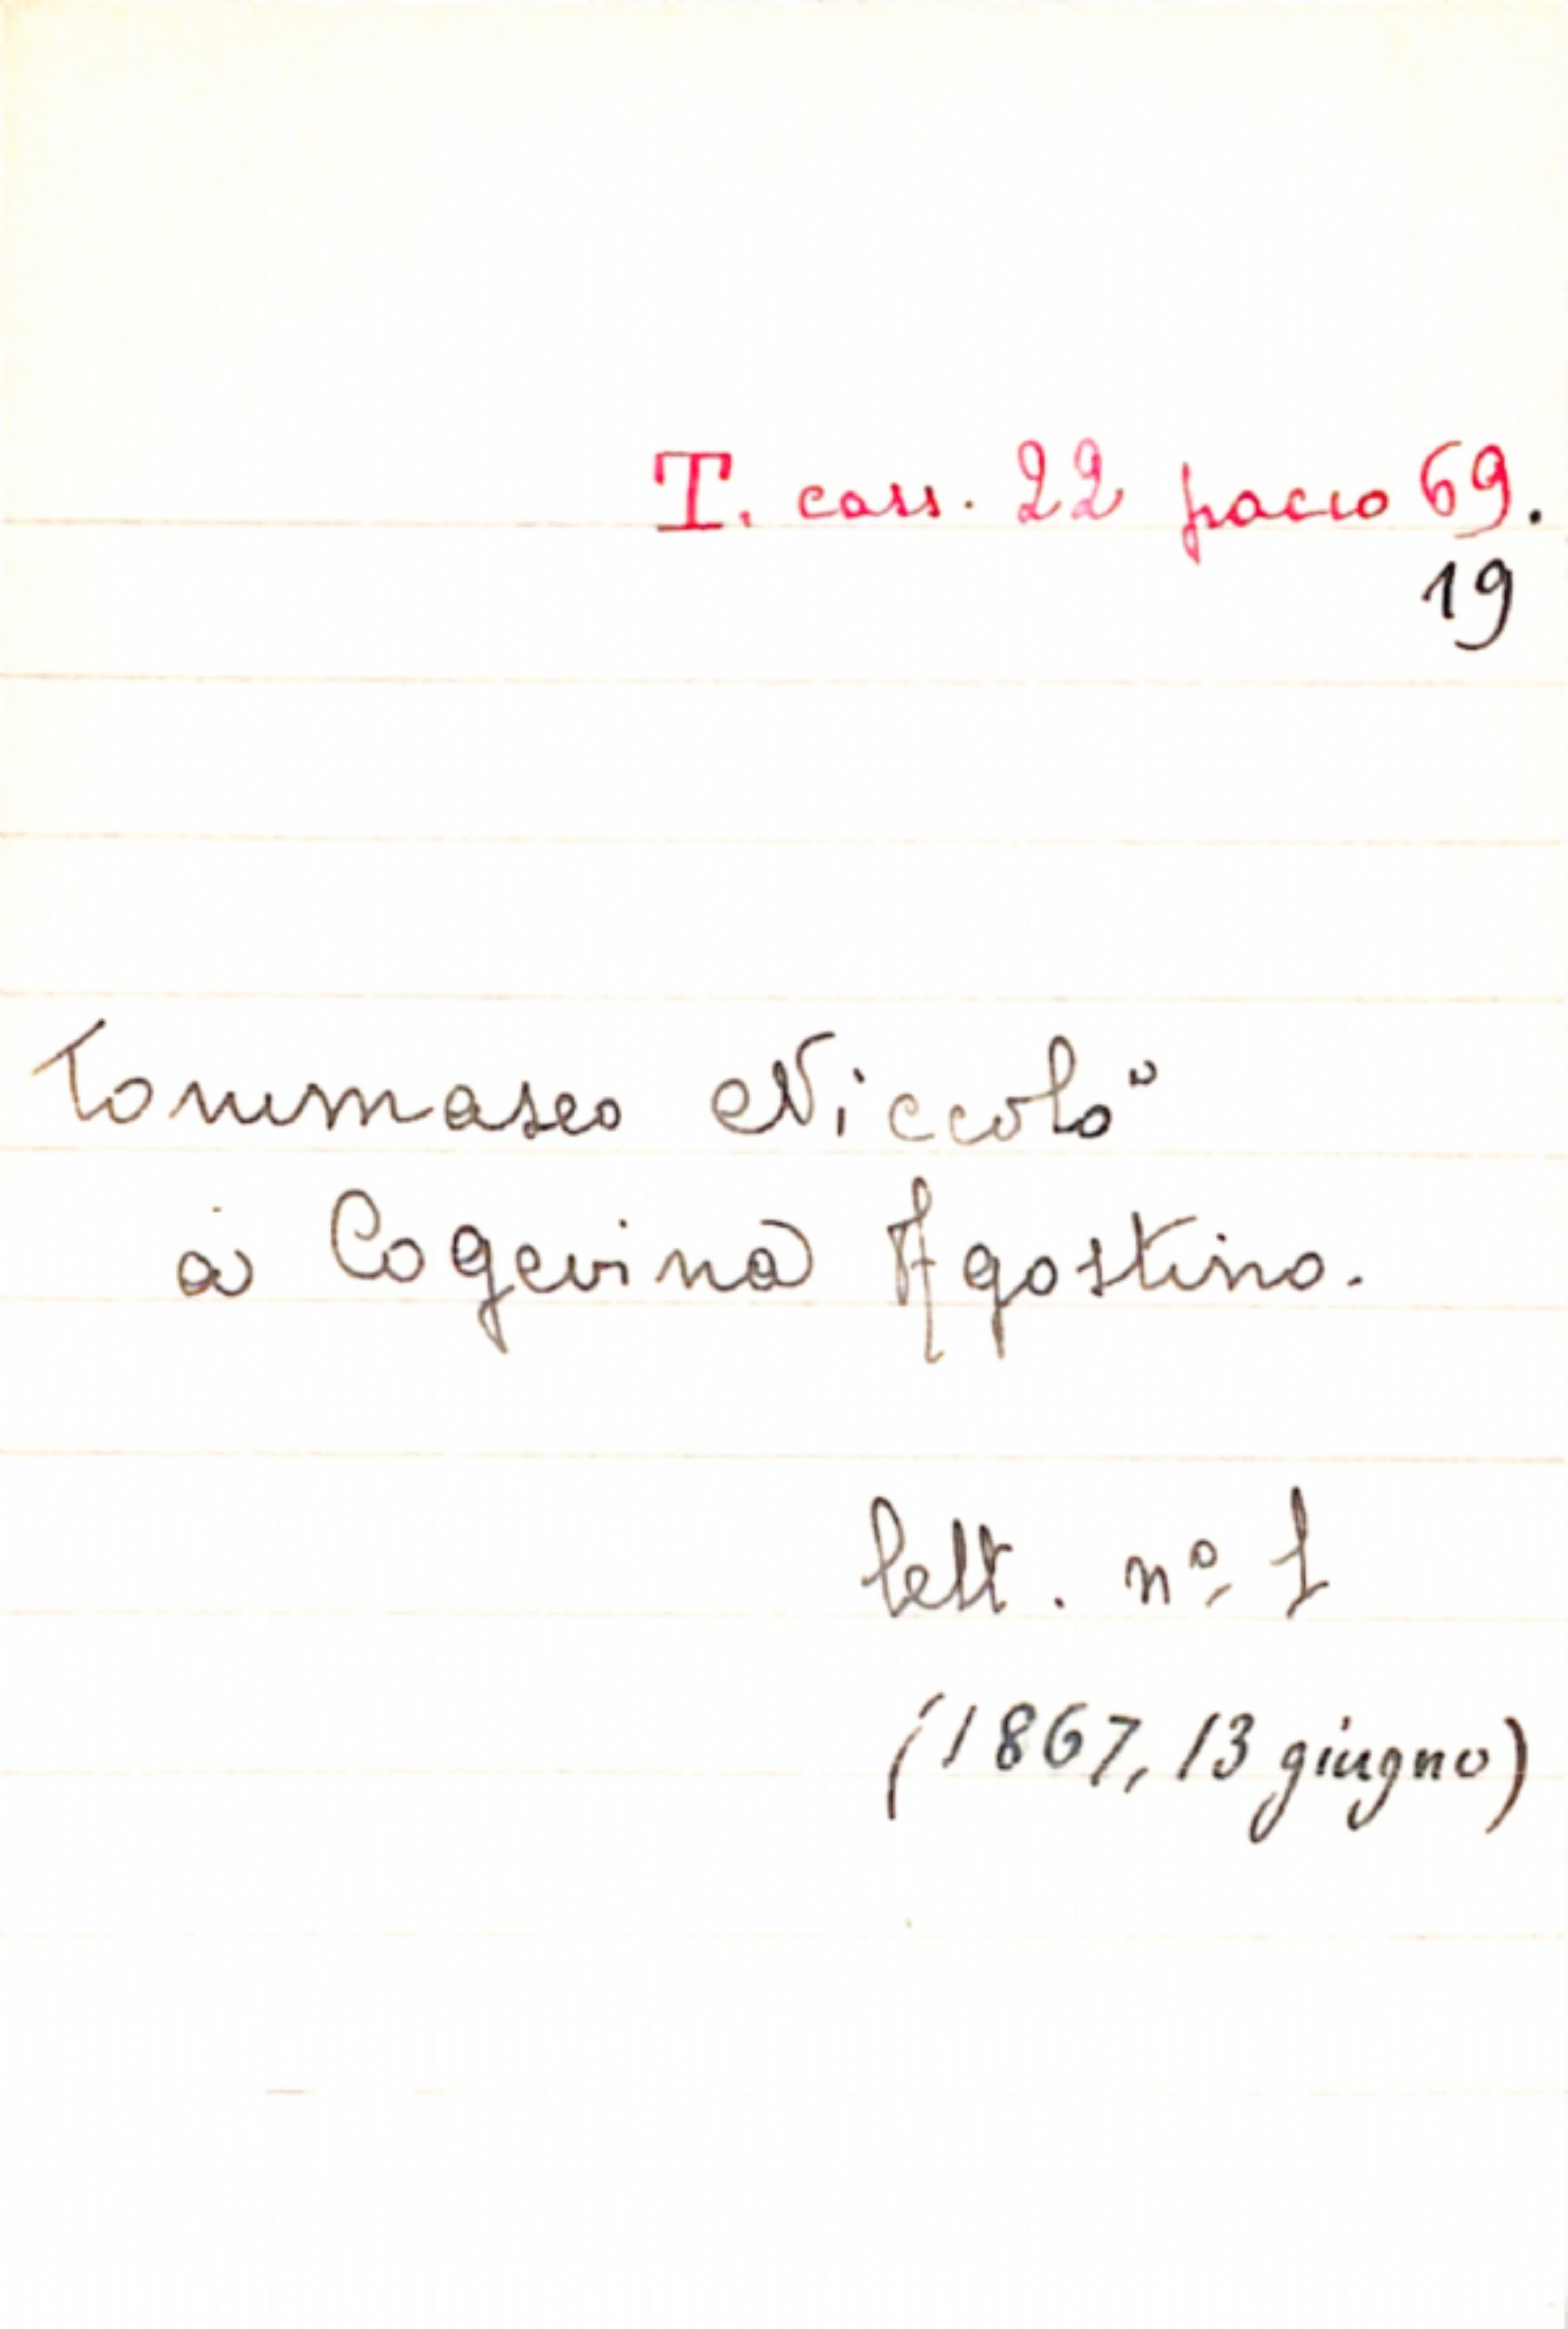 T. cass. 22 pacco 69.
19
Tommaseo Niccolò
a Cogevina Agostino.
lett. nº 1
(1867, 13 giugno)